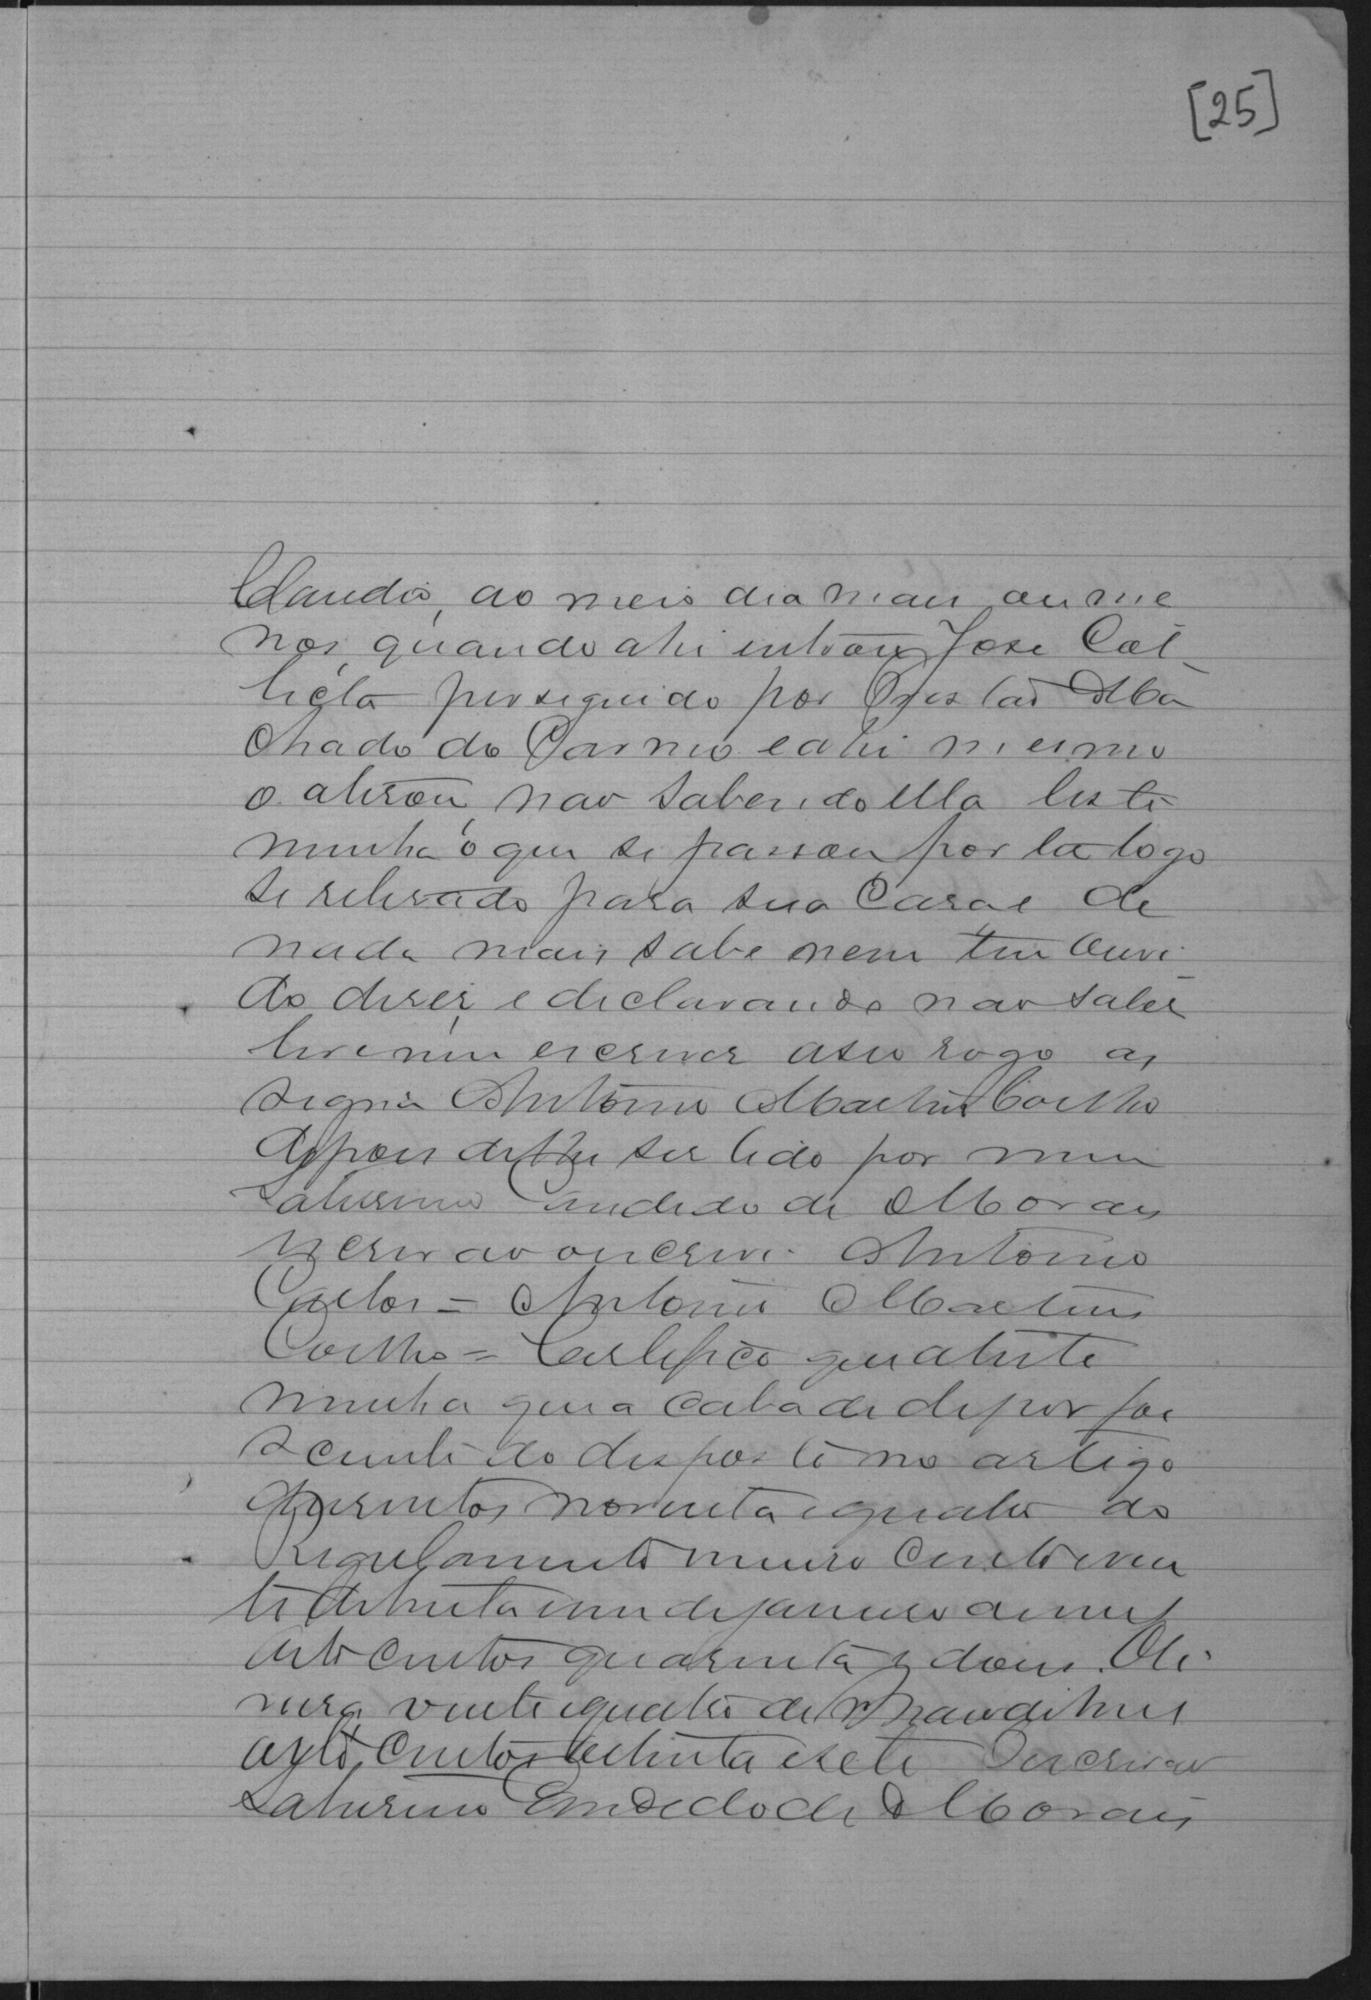 [25]
Claudio, ao meio dia mais ou me
nos, quando ahi entrou José Cal
heta perseguido por Cristão Ma
chado do Carmo e ahi mesmo
o atirou, não sabendo ella teste
munha o que se passou por ter logo
se retirado para sua Casa e de
nada mais sabe nem tem ouvi
do diser, e declarando não saber
ler e nem escrever a seu rogo as
signa Antonio Martins Coelho
depois de lhe ser lido por mim
Saturnino Candido de Moraes
escrivão o escrevi. Antonio
Carlos = Antonio Martins
Coelho = Certifico que a teste
munha que acaba de depor foi
scente do disposto no artigo
dusentos noventa e quatro do
Regulamento numero cento e vin
te de trinta e um de Janeiro de mil
oito centos quarenta e dous. Oli
veira vinte e quatro de Maio de mil
oito centos oitenta e sete O escrivão
Saturnino Candido de Moraes